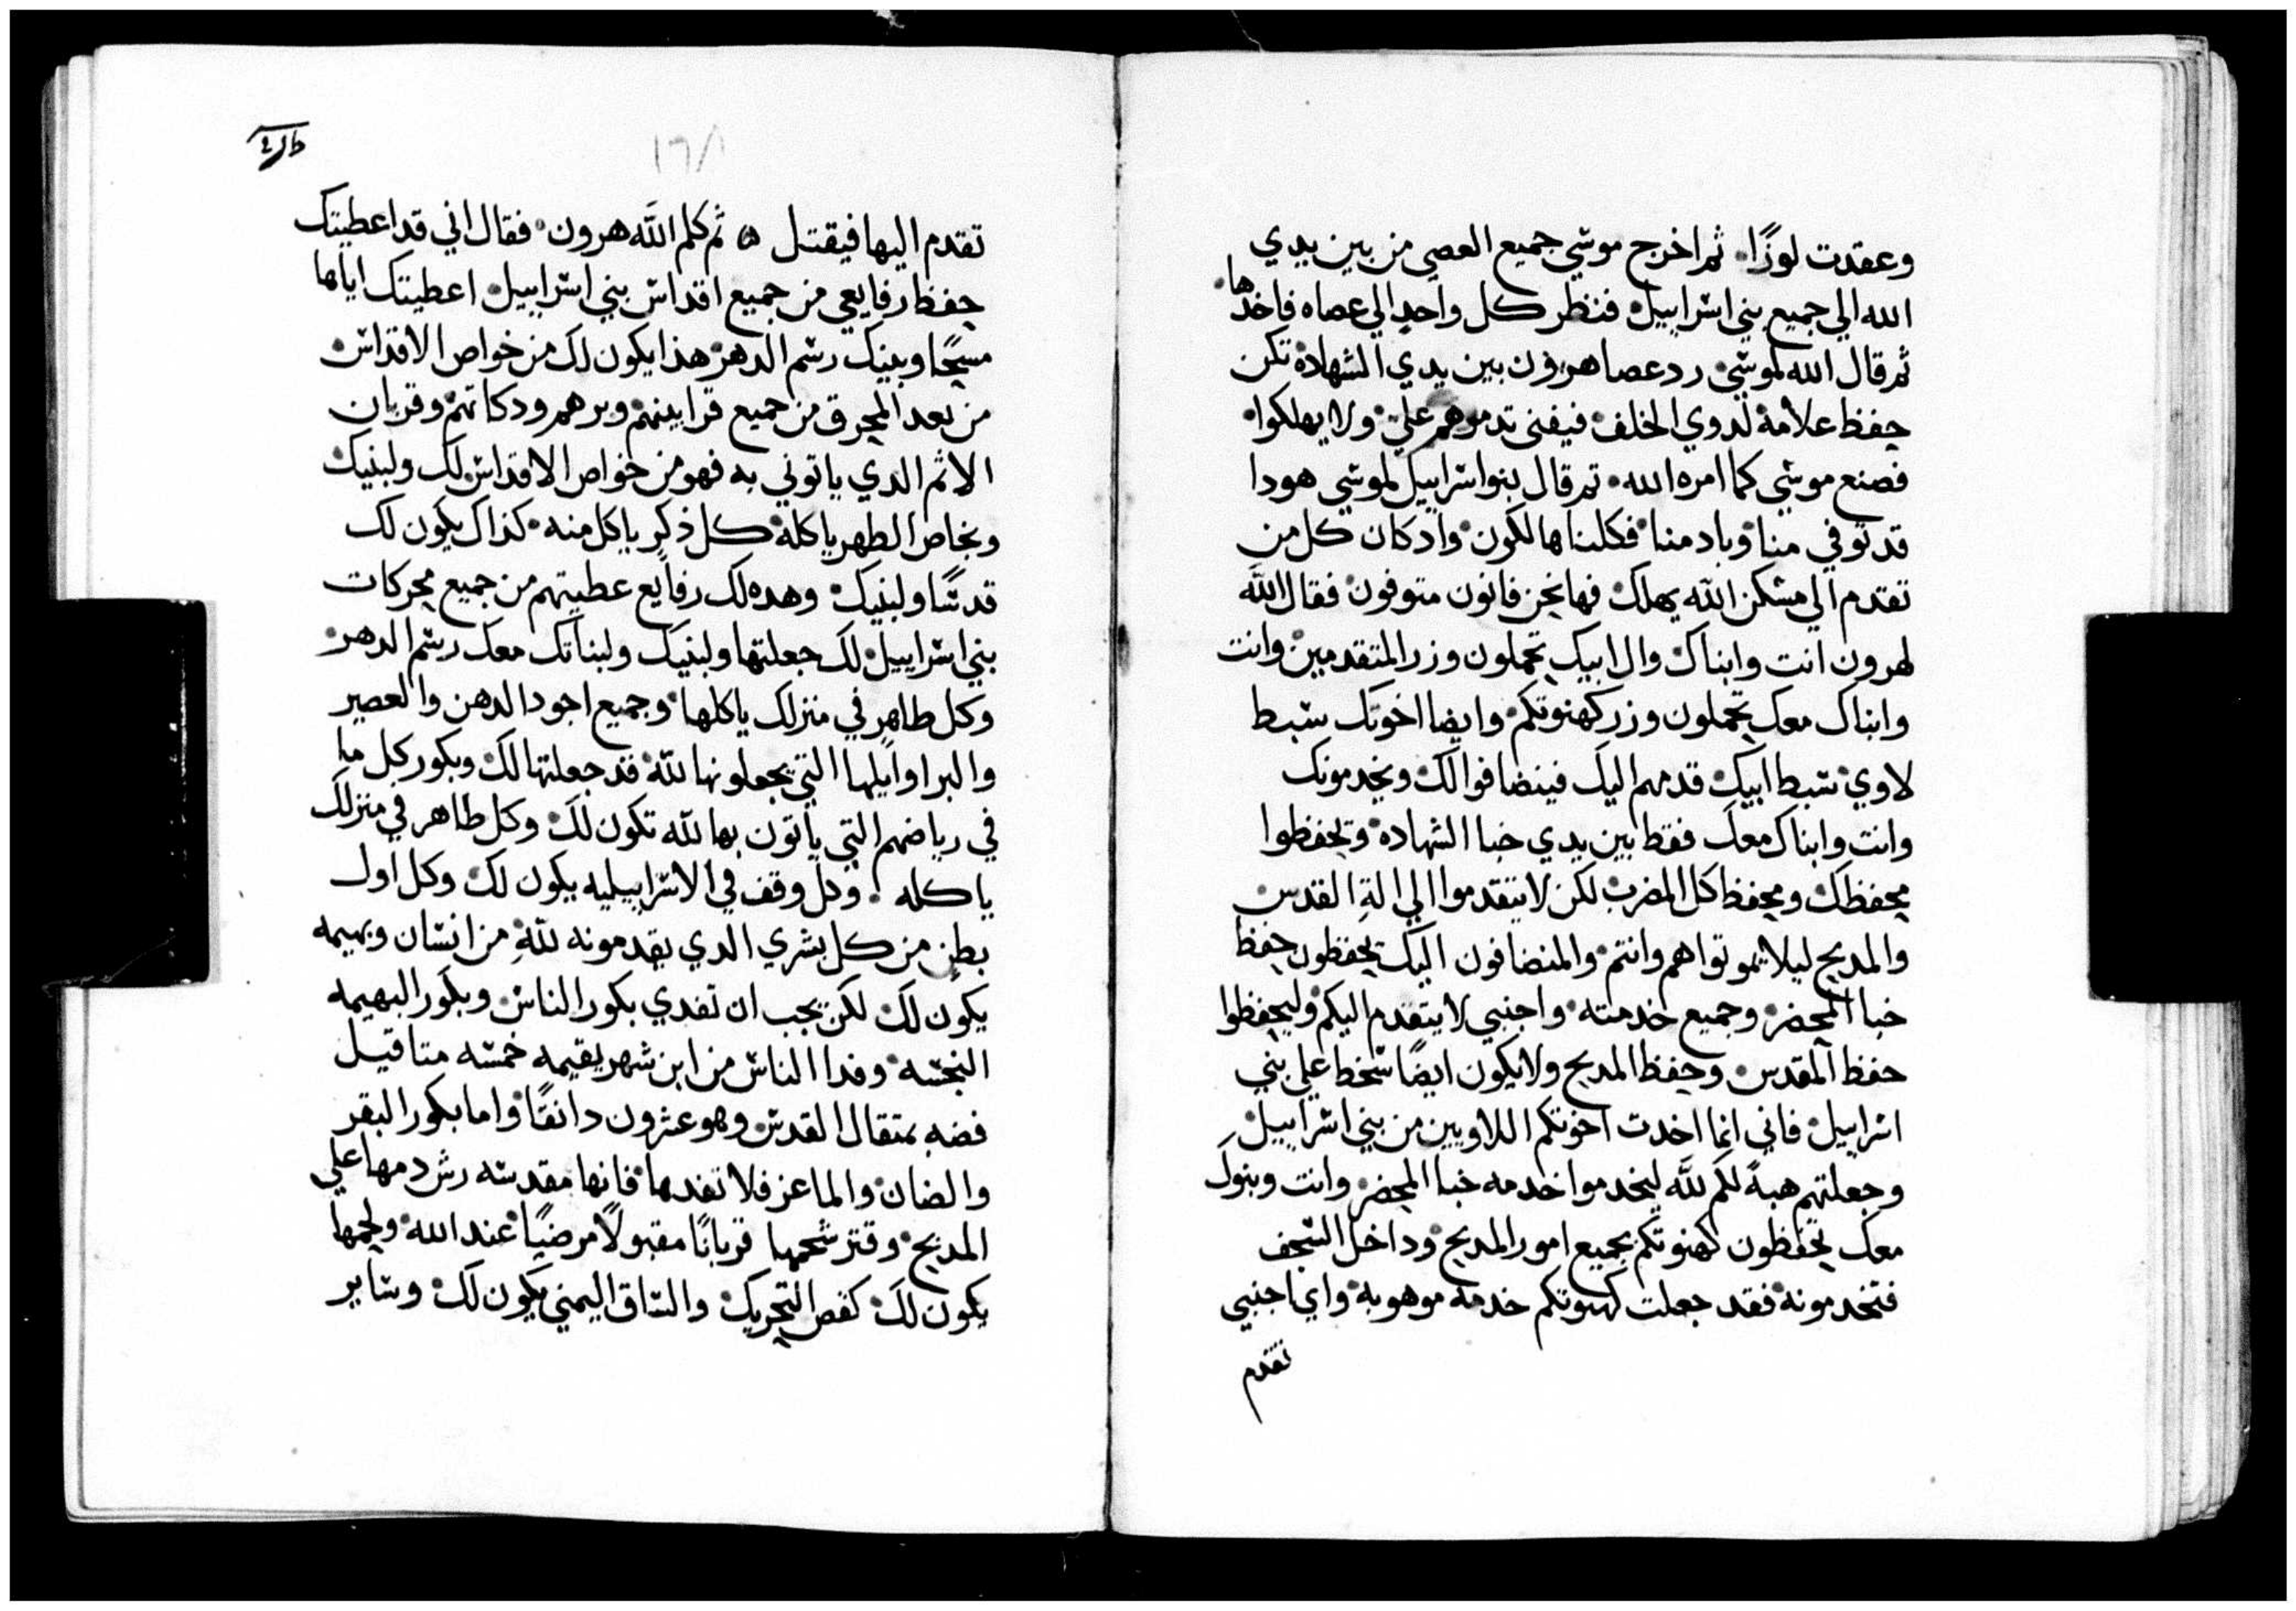 وعقدت لوزًا. ثم اخرج موسي جميع العصي من بين يدي
الله الي جميع بني اسراييل فنظر كل واحد الي عصاه فاخدها.
ثم قال الله لموسي رد عصا هرون بين يدي الشهاده تكن
حفظ علامة لدوي الخلف فيفني تدمرهم علي ولا يهلكوا
فصنع موسي كما امره الله. تم قال بنوا اسراييل لموسي هودا
قد توفي منا وباد منا فكلنا هالكون واد كان كل من
تقدم الي مسكن الله يهلك فهانحن فانون متوفون فقال الله
لهرون انت وابناك وال ابيك تحملون وزر المتقدمين وانت
وابناك معك تحملون وزر كهنوتكم وايضا اخوتك سبط
لاوي سبط ابيك قدمهم اليك فينضافوا لك ويخدمونك
وانت وابناك معك فقط بين يدي خبا الشهاده وتحفظوا
محفظك ومحفظ كل المضرب لكن لا يتقدموا الي الة القدس
والمدبح ليلا يموتوا هم وانتم والمنضافون اليك يحفظون حفظ
خبا المحضر وجميع خدمته واجنبي لا يتقدم اليكم وليحفظوا
حفظ المقدس وحفظ المدبح ولا يكون ايضًا سخط علي بني
اسراييل فاني انما اخدت اخوتكم اللاويين من بني اسراييل
وجعلتهم هبةً لكم لله ليخدموا خدمه خبا المحضر وانت وبنوك
معك تحفظون كهنوتكم بجميع امور المدبح وداخل السجف
فتخدمونه فقد جعلت كهنوتكم خدمة موهوبة واي اجنبي
تقدم
١٦٨
تقدم اليها فيقتل ثم كلم الله هرون فقال اني قد اعطيتك
حفظ رفايعي من جميع اقداس بني اسراييل اعطيتك اياها
مسحًا وبنيك رسم الدهر هذا يكون لك من خواص الاقداس
من بعد المحرق من جميع قرابينهم وبرهم ودكاتهم وقربان
الاثم الدي ياتوني به فهو من خواص الاقداس لك ولبنيك
وبخاص الطهر ياكله كل ذكر ياكل منه كذاك يكون لك
قدسًا ولبنيك وهده لك رفايع عطيتهم من جميع محركات
بني اسراييل لك جعلتها ولبنيك ولبناتك معك رسم الدهر
وكل طاهر في منزلك ياكلها وجميع اجود الدهن والعصير
والبر اوايلها التي يجعلونها لله قد جعلتها لك وبكور كل ما
في رياضهم التي ياتون بها لله تكون لك وكل طاهر في منزلك
ياكله. وكل وقف في الاسراييليه يكون لك وكل اول
بطن من كل بشري الدي يقدمونه لله من انسان وبهيمه
يكون لك لكن يجب ان تفدي بكور الناس وبكور البهيمه
النجسه وفدا الناس من ابن شهر بقيمه خمسه متاقيل
فضه بمتقال القدس وهو عشرون دانقًا واما بكور البقر
والضان والماعز فلا تفدها فانها مقدسه رش دمها علي
المدبح وقتر شحمها قربانًا مقبولًا مرضيًا عند الله ولحمها
يكون لك كفص التحريك والساق اليمني يكون لك وساير